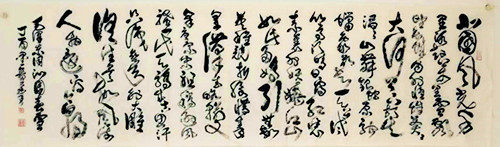 北國風光千
里冰封萬里雪飄
望長城內外惟餘莽莽
大河上下頓失
滔滔山舞銀蛇原馳
蠟象欲與天公試
比高須晴日看紅裝
素裹分外妖嬈江山
如此多嬌引無
數英雄競折腰惜
秦皇漢武略輸文
采唐宗宋祖稍遜風
騷一代天驕成吉思汗
只識彎弓射大雕
俱往矣數風流
人物還看今朝
毛澤東詞沁園春雪
丁酉